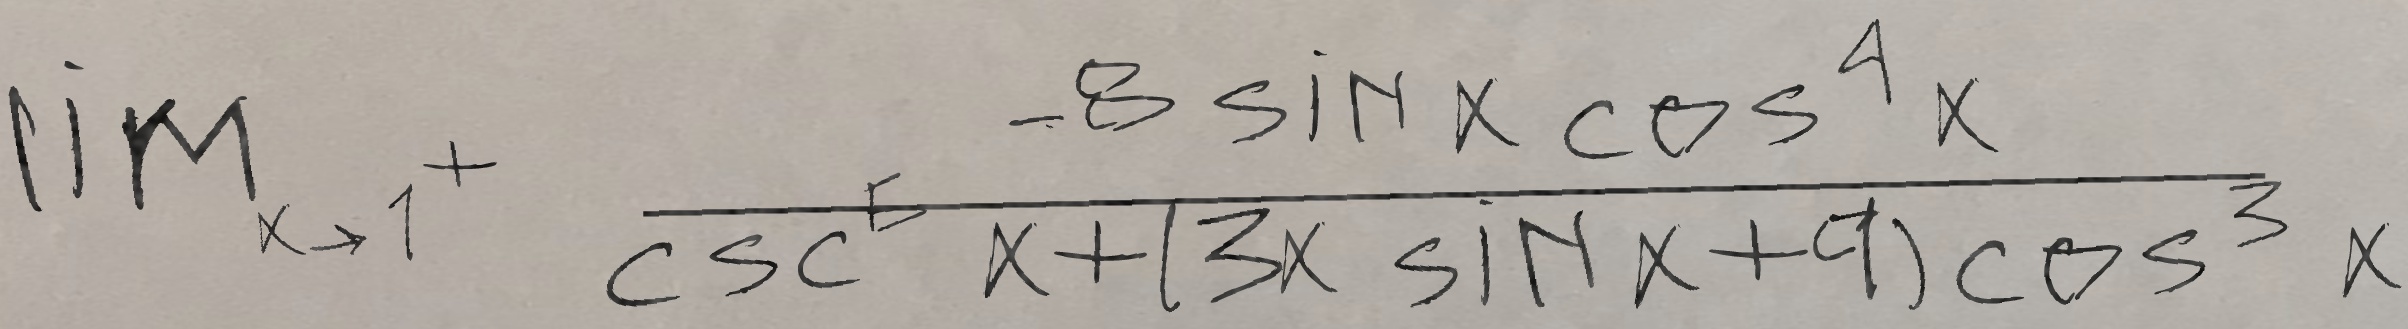 \lim_{x \to 1^+} \frac{-8 \sin x \cos^4 x}{\csc^5 x + (3x \sin x + 9) \cos^3 x}